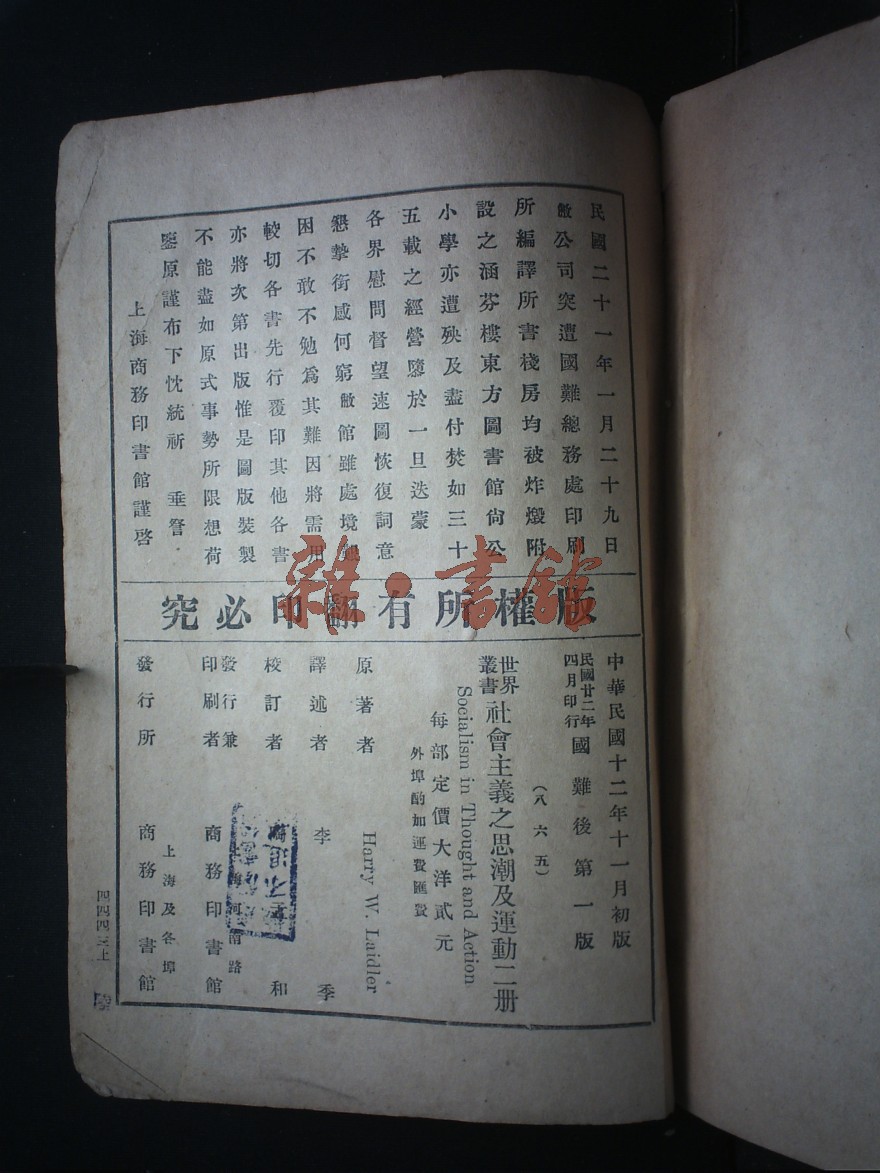 民國二十一年一月二十九日
敝公司突遭國難總務處印刷
所編譯所書棧房均被炸燬附
設之涵芬樓東方圖書館尙公
小學亦遭殃及盡付焚如三十
五載之經營隳於一旦迭蒙
各界慰問督望速圖恢復詞意
懇摯銜感何窮敝館雖處境艱
困不敢不勉爲其難因將需用
較切各書先行覆印其他各書
亦將次第出版惟是圖版裝製
不能盡如原式事勢所限想荷
鑒原謹布下忱統祈 垂詧
上海商務印書館謹啓
版權所有翻印必究
雜·書館
中華民國十二年十一月初版
民國廿二年四月印行 國難後第一版
(八六五)
世界叢書 社會主義之思潮及運動二册
Socialism in Thought and Action
每部定價大洋貳元
外埠酌加運費匯費
原著者 Harry W. Laidler
譯述者 李季
校訂者 和
發行兼印刷者 河南路 商務印書館
發行所 上海及各埠 商務印書館
四四四三上